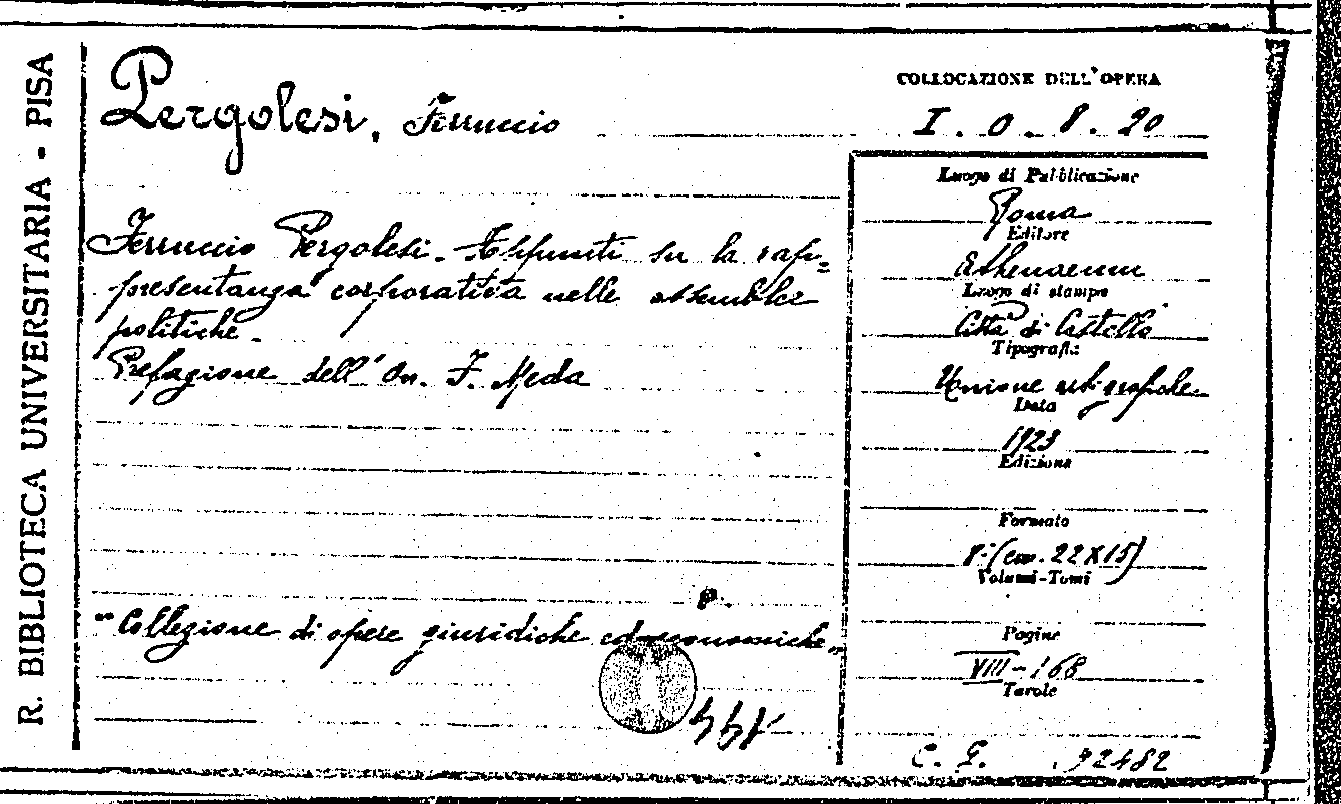 R. BIBLIOTECA UNIVERSITARIA - PISA
Pergolesi, Ferruccio
COLLOCAZIONE DELL'OPERA
I. O. 8. 20
Ferruccio Pergolesi. Appunti su la rap=
presentanza corporativa nelle assemblee
politiche.
Prefazione dell'On. F. Meda
p.
"Collezione di opere giuridiche ed economiche"
Luogo di Pubblicazione
Roma
Editore
Athenaeum
Luogo di stampa
Città di Castello
Tipografia
Unione arti grafiche
Data
1923
Edizione
Formato
8° (cm. 22X15)
Volumi-Tomi
Pagine
VIII-168
Tavole
C. G. 92482